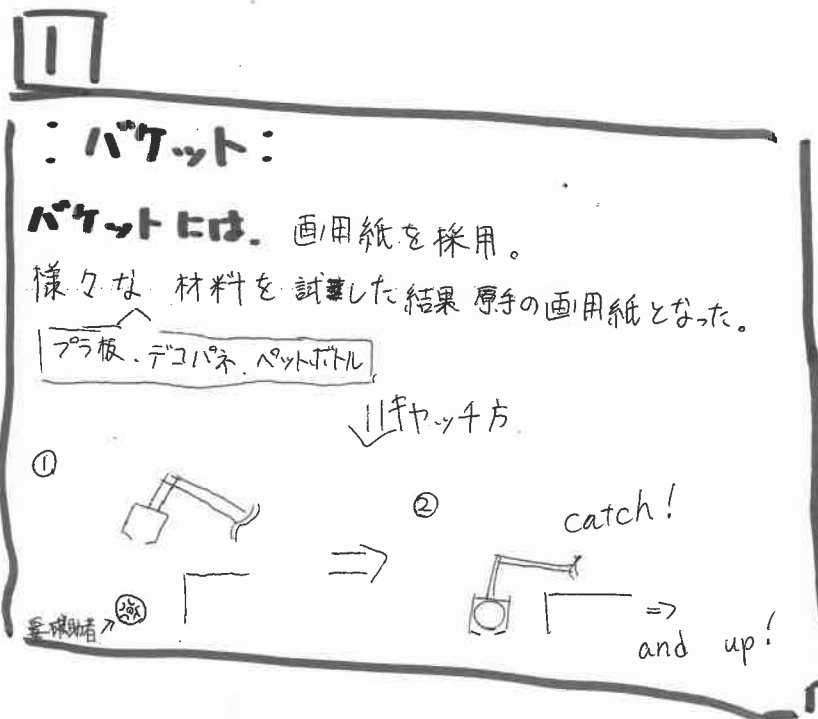 1
:バケット:
バケットには、画用紙を採用。
様々な材料を試した結果 厚手の画用紙となった。
プラ板、デコパネ、ペットボトル
キャッチ方
①
②
catch!
要球助者
and up!